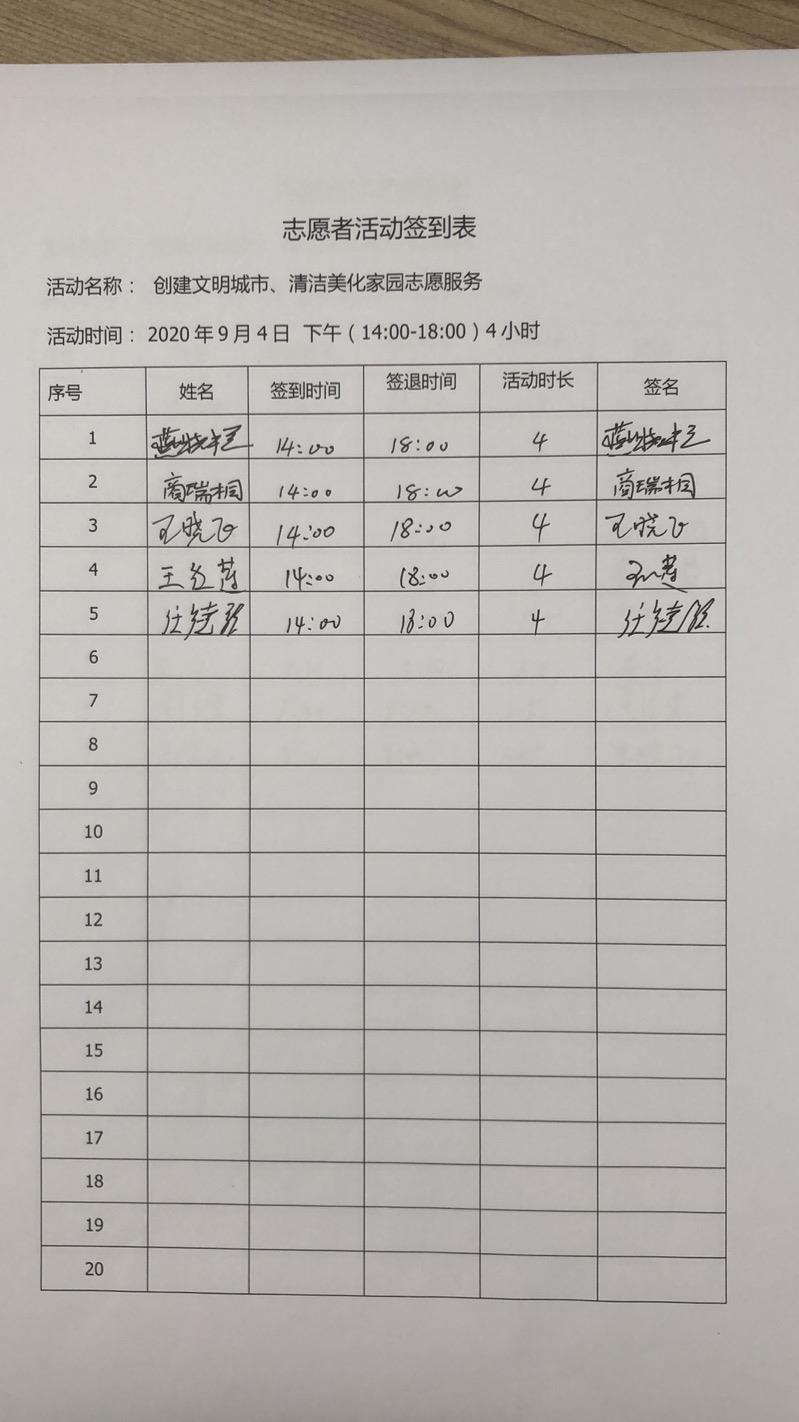 志愿者活动签到表
活动名称： 创建文明城市、清洁美化家园志愿服务
活动时间：2020年9月4日 下午（14:00-18:00）4小时
序号 姓名 签到时间 签退时间 活动时长 签名
1 14:00 18:00 4
2 商瑞桐 14:00 18:00 4 商瑞桐
3 王晓飞 14:00 18:00 4 王晓飞
4 14:00 18:00 4
5 14:00 18:00 4
6
7
8
9
10
11
12
13
14
15
16
17
18
19
20